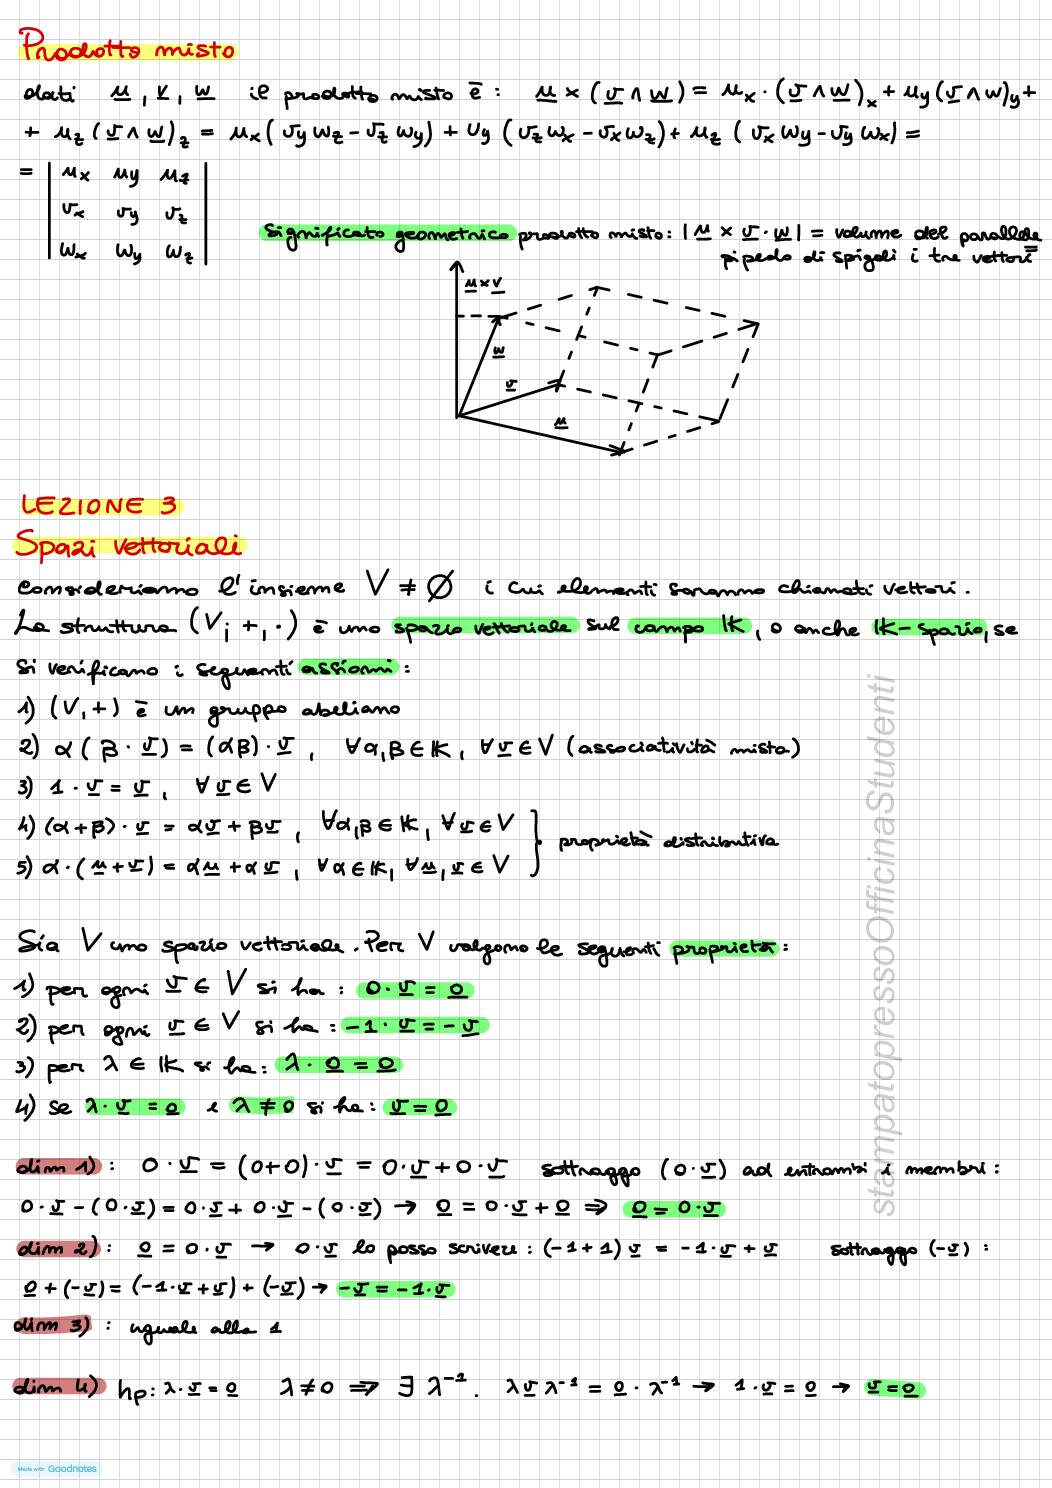 Prodotto misto
dati u, v, w il prodotto misto è: u × (v ∧ w) = ux · (v ∧ w)x + uy (v ∧ w)y +
+ uz (v ∧ w)z = ux (vy wz - vz wy) + uy (vz wx - vx wz) + uz (vx wy - vy wx) =
= | ux uy uz |
| vx vy vz |
| wx wy wz |
Significato geometrico prodotto misto: |u × v · w| = volume del parallele
pipedo di spigoli i tre vettori
u × v
w
v
u
LEZIONE 3
Spazi vettoriali
Consideriamo l'insieme V ≠ Ø i cui elementi saranno chiamati vettori.
La struttura (V; +, ·) è uno spazio vettoriale sul campo K, o anche K-spazio, se
si verificano i seguenti assiomi:
1) (V, +) è un gruppo abeliano
2) α(β · v) = (αβ) · v, ∀α, β ∈ K, ∀v ∈ V (associatività mista)
3) 1 · v = v, ∀v ∈ V
4) (α+β) · v = αv + βv, ∀α, β ∈ K, ∀v ∈ V
5) α · (u + v) = αu + αv, ∀α ∈ K, ∀u, v ∈ V
proprietà distributiva
Sia V uno spazio vettoriale. Per V valgono le seguenti proprietà:
1) per ogni v ∈ V si ha: 0 · v = 0
2) per ogni v ∈ V si ha: -1 · v = -v
3) per λ ∈ K si ha: λ · 0 = 0
4) se λ · v = 0 e λ ≠ 0 si ha: v = 0
dim 1): 0 · v = (0+0) · v = 0 · v + 0 · v sottraggo (0 · v) ad entrambi i membri:
0 · v - (0 · v) = 0 · v + 0 · v - (0 · v) → 0 = 0 · v + 0 ⇒ 0 = 0 · v
dim 2): 0 = 0 · v → 0 · v lo posso scrivere: (-1+1) v = -1 · v + v sottraggo (-v):
0 + (-v) = (-1 · v + v) + (-v) → -v = -1 · v
dim 3): uguale alla 1
dim 4) hp: λ · v = 0 λ ≠ 0 ⇒ ∃ λ⁻¹. λ v λ⁻¹ = 0 · λ⁻¹ → 1 · v = 0 → v = 0
stampatopressoOfficinaStudenti
Made with Goodnotes